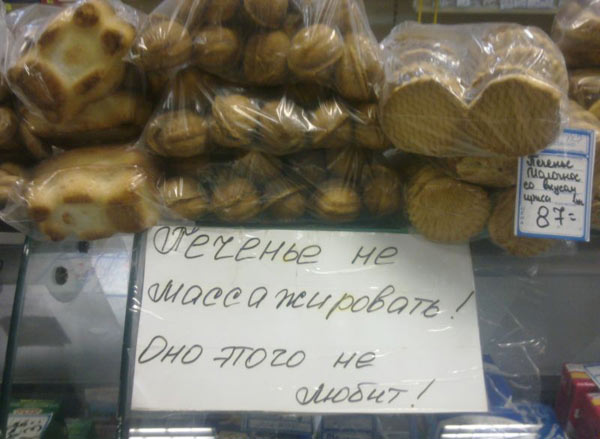 Печенье
Молочное
со вкусом
ириса
87=
Печенье не
массажировать!
Оно того не
любит!